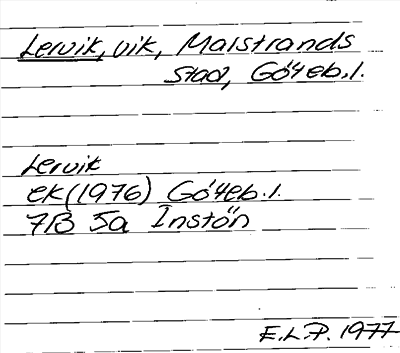 Lervik, vik, Malstrands
stad, Göteb.l.
Lervik
ek(1976) Göteb.l.
7B 5a Instön
E.L.P. 1977